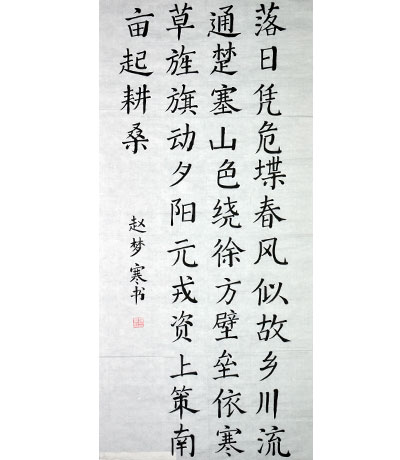 落日凭危堞春风似故乡川流
通楚塞山色绕徐方壁垒依寒
草旌旗动夕阳元戎资上策南
亩起耕桑
赵梦寒书